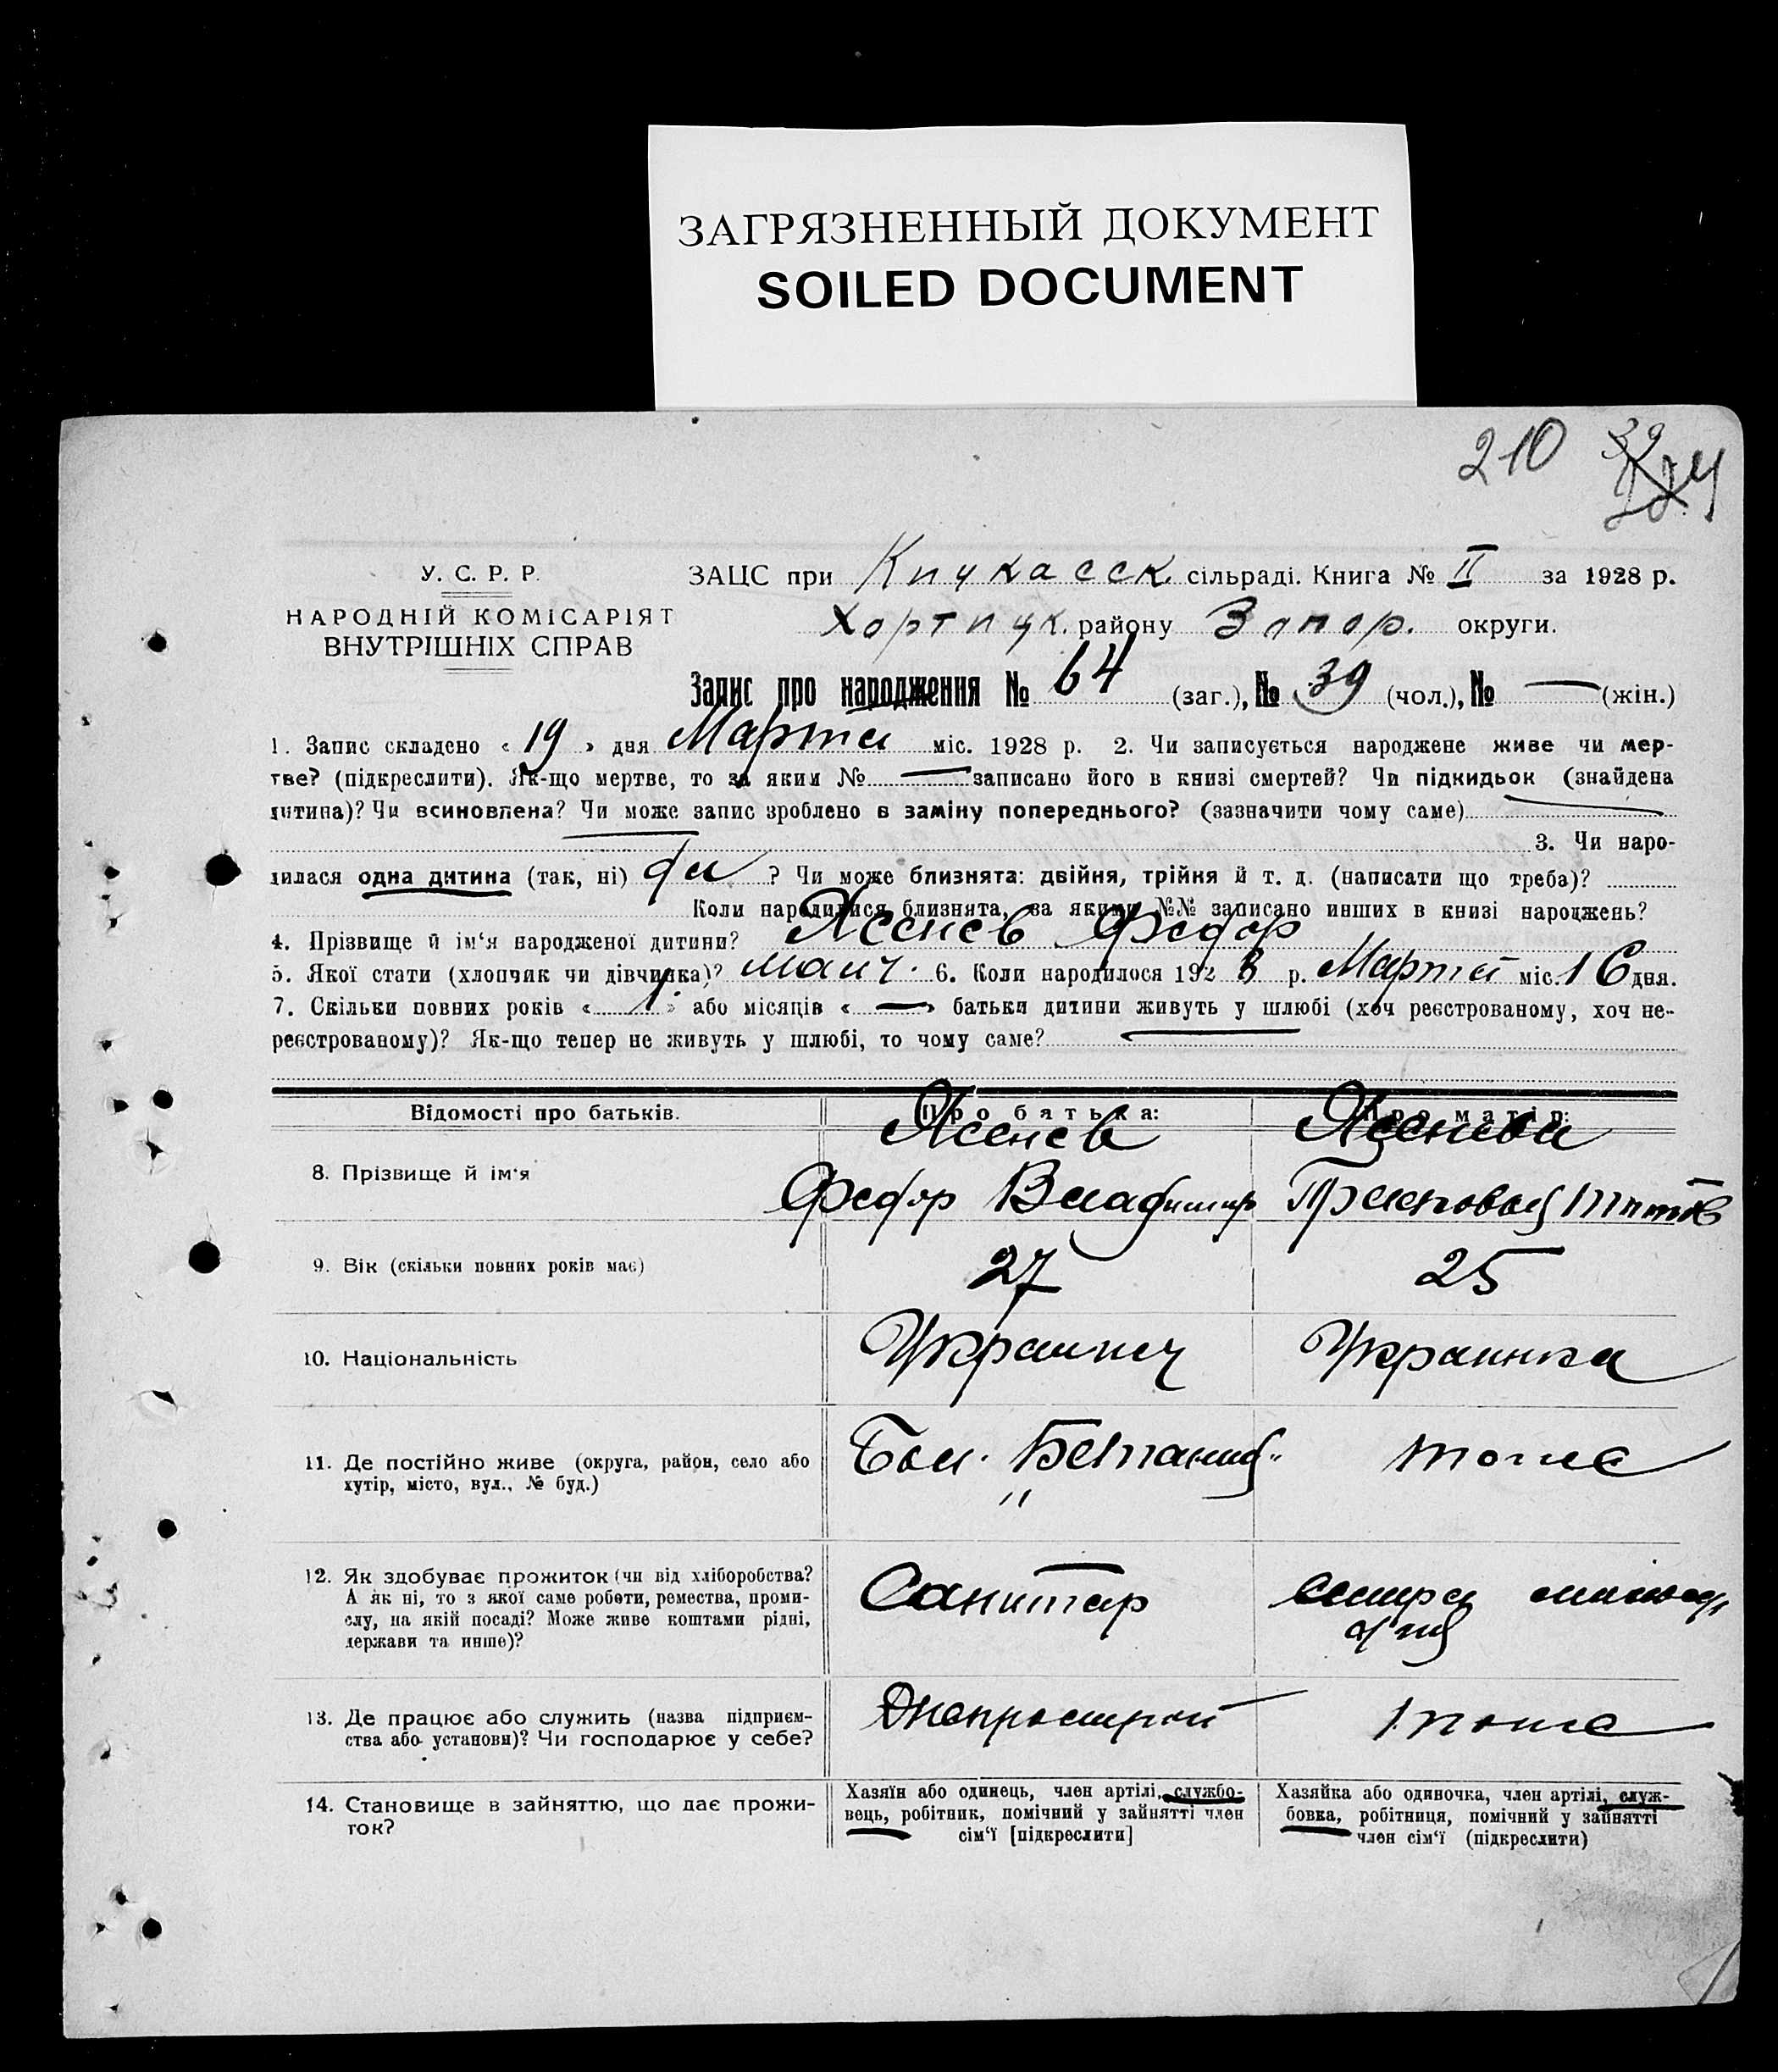 ЗАГРЯЗНЕННЫЙ ДОКУМЕНТ
SOILED DOCUMENT
210
У. С. Р. Р.
НАРОДНІЙ КОМІСАРІЯТ
ВНУТРІШНІХ СПРАВ
ЗАЦС при Кичкасск. сільраді. Книга № II за 1928 р.
Хортицк. району Запор. округи.
Запис про народження № 64 (заг.), № 39 (чол.), № — (жін.)
1. Запис складено « 19 » дня Марта міс. 1928 р. 2. Чи записується народжене живе чи мер-
тве? (підкреслити). Як-що мертве, то за яким № — записано його в книзі смертей? Чи підкидьок (знайдена
дитина)? Чи всиновлена? Чи може запис зроблено в заміну попереднього? (зазначити чому саме)
3. Чи наро-
дилася одна дитина (так, ні) да ? Чи може близнята: двійня, трійня й т. д. (написати що треба)?
Коли народилися близнята, за якими №№ записано инших в книзі народжень?
4. Прізвище й ім'я народженої дитини? Ясенев Федор
5. Якої стати (хлопчик чи дівчинка)? мальч. 6. Коли народилося 1928 р. Марта міс. 16 дня.
7. Скільки повних років « 1 » або місяців « — » батьки дитини живуть у шлюбі (хоч реєстрованому, хоч не-
реєстрованому)? Як-що тепер не живуть у шлюбі, то чому саме?
Відомості про батьків. Про батька: Про матір:
8. Прізвище й ім'я
Ясенев
Федор Владимир
Ясенева
9. Вік (скільки повних років має) 27 25
10. Національність Украинец Украинка
11. Де постійно живе (округа, район, село або
хутір, місто, вул., № буд.)
тоже
12. Як здобуває прожиток (чи від хліборобства?
А як ні, то з якої саме роботи, ремества, проми-
слу, на якій посаді? Може живе коштами рідні,
держави та инше)?
Санитар
13. Де працює або служить (назва підприєм-
ства або установи)? Чи господарює у себе?
Днепрострой
тоже
14. Становище в зайняттю, що дає прожи-
ток?
Хазяїн або одинець, член артілі, службо-
вець, робітник, помічний у зайнятті член
сім'ї [підкреслити]
Хазяйка або одиночка, член артілі, служ-
бовка, робітниця, помічний у зайнятті
член сім'ї (підкреслити)